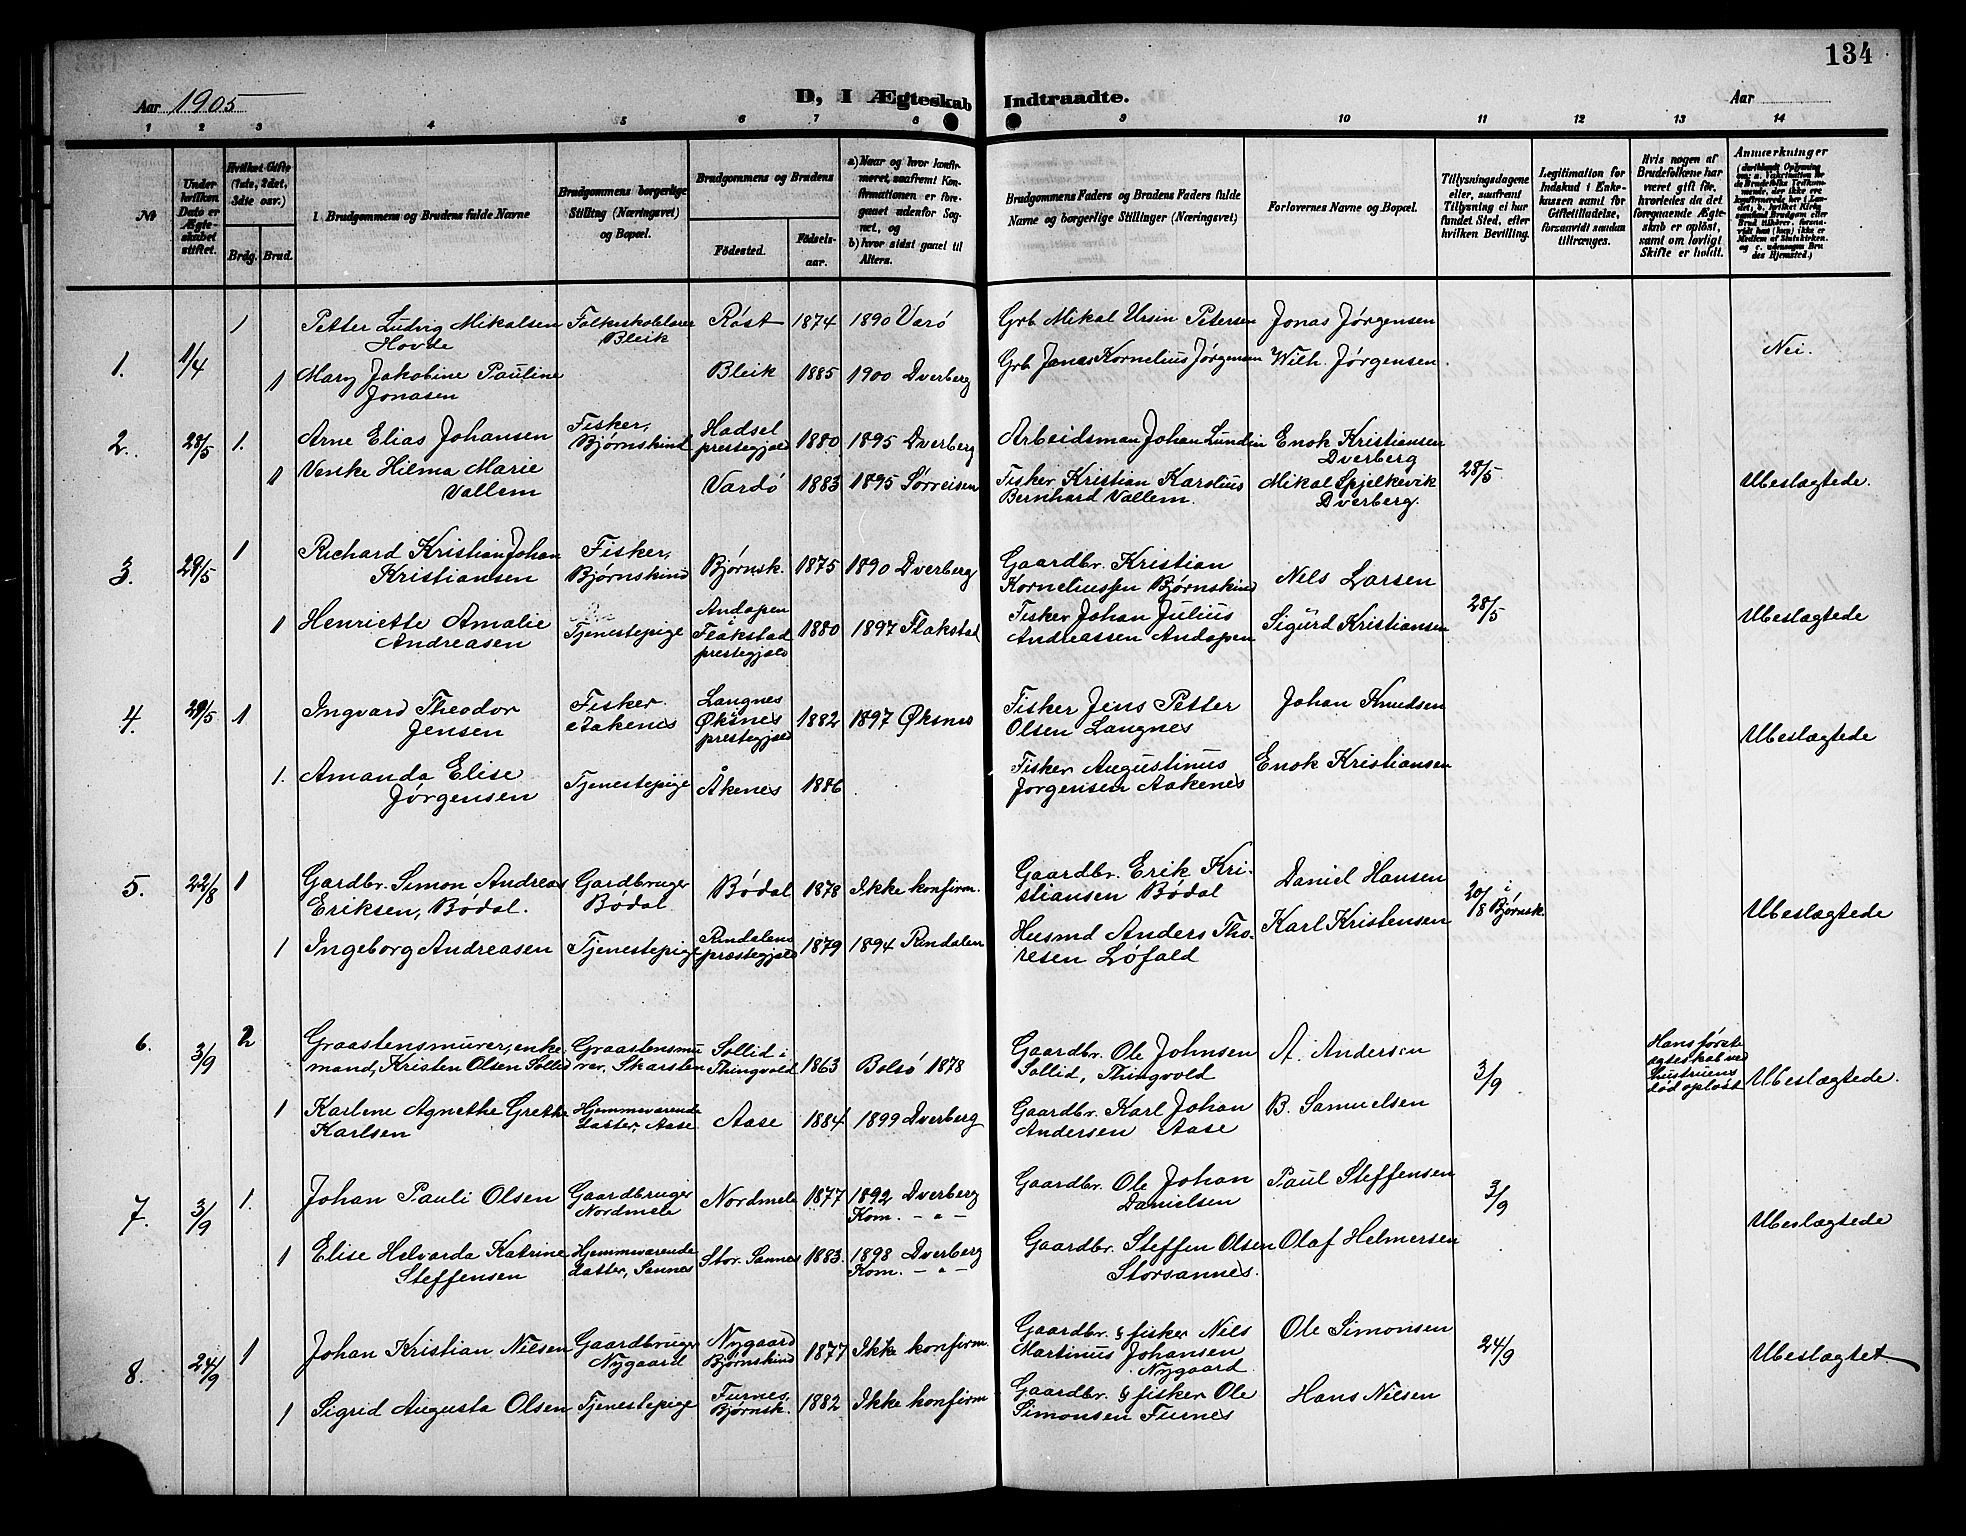 134
Aar 1905
D, I Ægteskab Indtraadte.
Aar
1 2 3 4 5 6 7 8 9 10 11 12 13 14
№
Under hvilken Dato er Ægteskabet stiftet.
Hvilket Gifte (1ste, 2det, 3die osv.)
Brdg. Brud.
1. Brudgommens og Brudens fulde Navne
Brudgommens borgerlige Stilling (Næringsvei) og Bopæl.
Brudgommens og Brudens
Födested.
Födselsaar.
a) Naar og hvor konfirmeret, saafremt Konfirmationen er foregaaet udenfor Sognet, og
b) hvor sidst gaaet til Alters.
Brudgommens Faders og Brudens Faders fulde Navne og borgerlige Stillinger (Næringsvei)
Forlovernes Navne og Bopæl.
Tillysningsdagene eller, saafremt Tillysning ei har fundet Sted, efter hvilken Bevilling.
Legitimation for Indskud i Enkekassen samt for Giftetilladelse, forsaavidt saadan tiltrænges.
Hvis nogen af Brudefolkene har været gift för, hvorledes da det foregaaende Ægteskab er oplöst, samt om lovligt Skifte er holdt.
Anmærkninger
1. 1/4 1 Petter Ludvig Mikalsen Hovde Folkeskolelærer Bleik Røst 1874 1890 Værö Grb. Mikal Ursin Petersen Jonas Jørgensen
1 Mary Jakobine Pauline Jonasen Bleik 1885 1900 Dverberg Grb. Jonas Kornelius Jørgensen Wilh. Jørgensen Nei.
2. 28/5 1. Arne Elias Johansen Fisker, Bjørnskind Hadsel prestegjeld 1880 1895 Dverberg Arbeidsman Johan Lundin Enok Kristiansen Dverberg
1 Venske Hilma Marie Vallem Vardö 1883 1895 Sørreisen Fisker Kristian Karolius Bernhard Vallem. Mikal Spjelkevik Dverberg. 28/5 Ubeslægtede.
3. 29/5 1 Richard Kristian Johan Kristiansen Fisker, Bjørnskind Bjørnsk. 1875 1890 Dverberg Gaardbr. Kristian Korneliussen Bjørnskind Nils Larsen
1 Henriette Amalie Andreasen Tjenestepige Andopen Flakstad prestegjeld 1880 1897 Flakstad Fisker Johan Julius Andreassen Andopen Sigurd Kristiansen 28/5 Ubeslægtede
4. 29/5 1 Ingvard Theodor Jensen Fisker Aakenes Langnes Øksnes prestegjeld 1882 1897 Øksnes Fisker Jens Petter Olsen Langnes Johan Knudsen
1. Amanda Elise Jørgensen Tjenestepige Åkenes 1886 Fisker Augustinus Jørgensen Aakenes Enok Kristiansen Ubeslægtede
5. 22/8 1 Gardbr. Simon Andreas Eriksen, Bödal. Gardbruger Bödal Bödal 1878 Ikke konfirm. Gaardbr. Erik Kristiansen Bödal Daniel Hansen
1 Ingeborg Andreasen Tjenestepige Rindalens præstegjeld 1879 1894 Rindalen Husmd Anders Thoresen Löfald Karl Kristensen 20/8 i Bjørnsk. Ubeslægtede
6. 3/9 2 Graastensmurer, enkemand, Kristen Olsen Sollid Graastensmurer, Skarsten Sollid i Thingvold 1863 Bolsö 1878 Gaardbr. Ole Johnsen Sollid, Thingvold A. Andersen
1 Karlene Agnethe Grethe Karlsen Hjemmeværende datter, Aase Aase 1884 1899 Dverberg Gaardbr. Karl Johan Andersen Aase B. Samuelsen 3/9 Hans først ægteskab ved hustruens död oplöst Ubeslægtede.
7. 3/9 1. Johan Pauli Olsen Gaardbruger Nordmele Nordmele 1877 1892 Dverberg Kom. - " - Gaardbr. Ole Johan Danielsen Paul Steffensen 3/9
1 Elise Helvarda Katrine Steffensen Hjemmeværende datter, Sannes Stor. Sannes 1883. 1898 Dverberg Kom. - " - Gaardbr. Steffen Olsen Storsannes. Olaf Helmersen Ubeslægtede
8. 24/9 1 Johan Kristian Nilsen Gaardbruger Nygaard Nygaard Bjørnskind 1877 Ikke konfirm. Gaardbr. & fisker Nils Martinus Johansen Nygaard Ole Simonsen 24/9
1 Sigrid Augusta Olsen Tjenestepige Furnes, Bjørnsk. 1882 Ikke konfirm Gaardbr. & fisker Ole Simonsen Furnes Hans Nilsen Ubeslægtet.